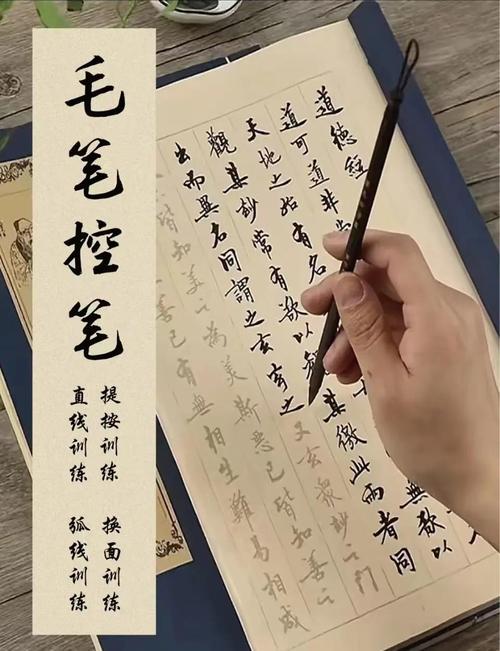 毛笔控笔
提按训练 换面训练
直线训练 弧线训练
道德經
道可道非常
天地之始有名
無欲以
觀其妙常有欲以觀其徼此兩者同
出而異名同謂之玄玄之又玄眾妙之門
皆知美之為美斯惡已皆知善之
善已有無相生難易相成